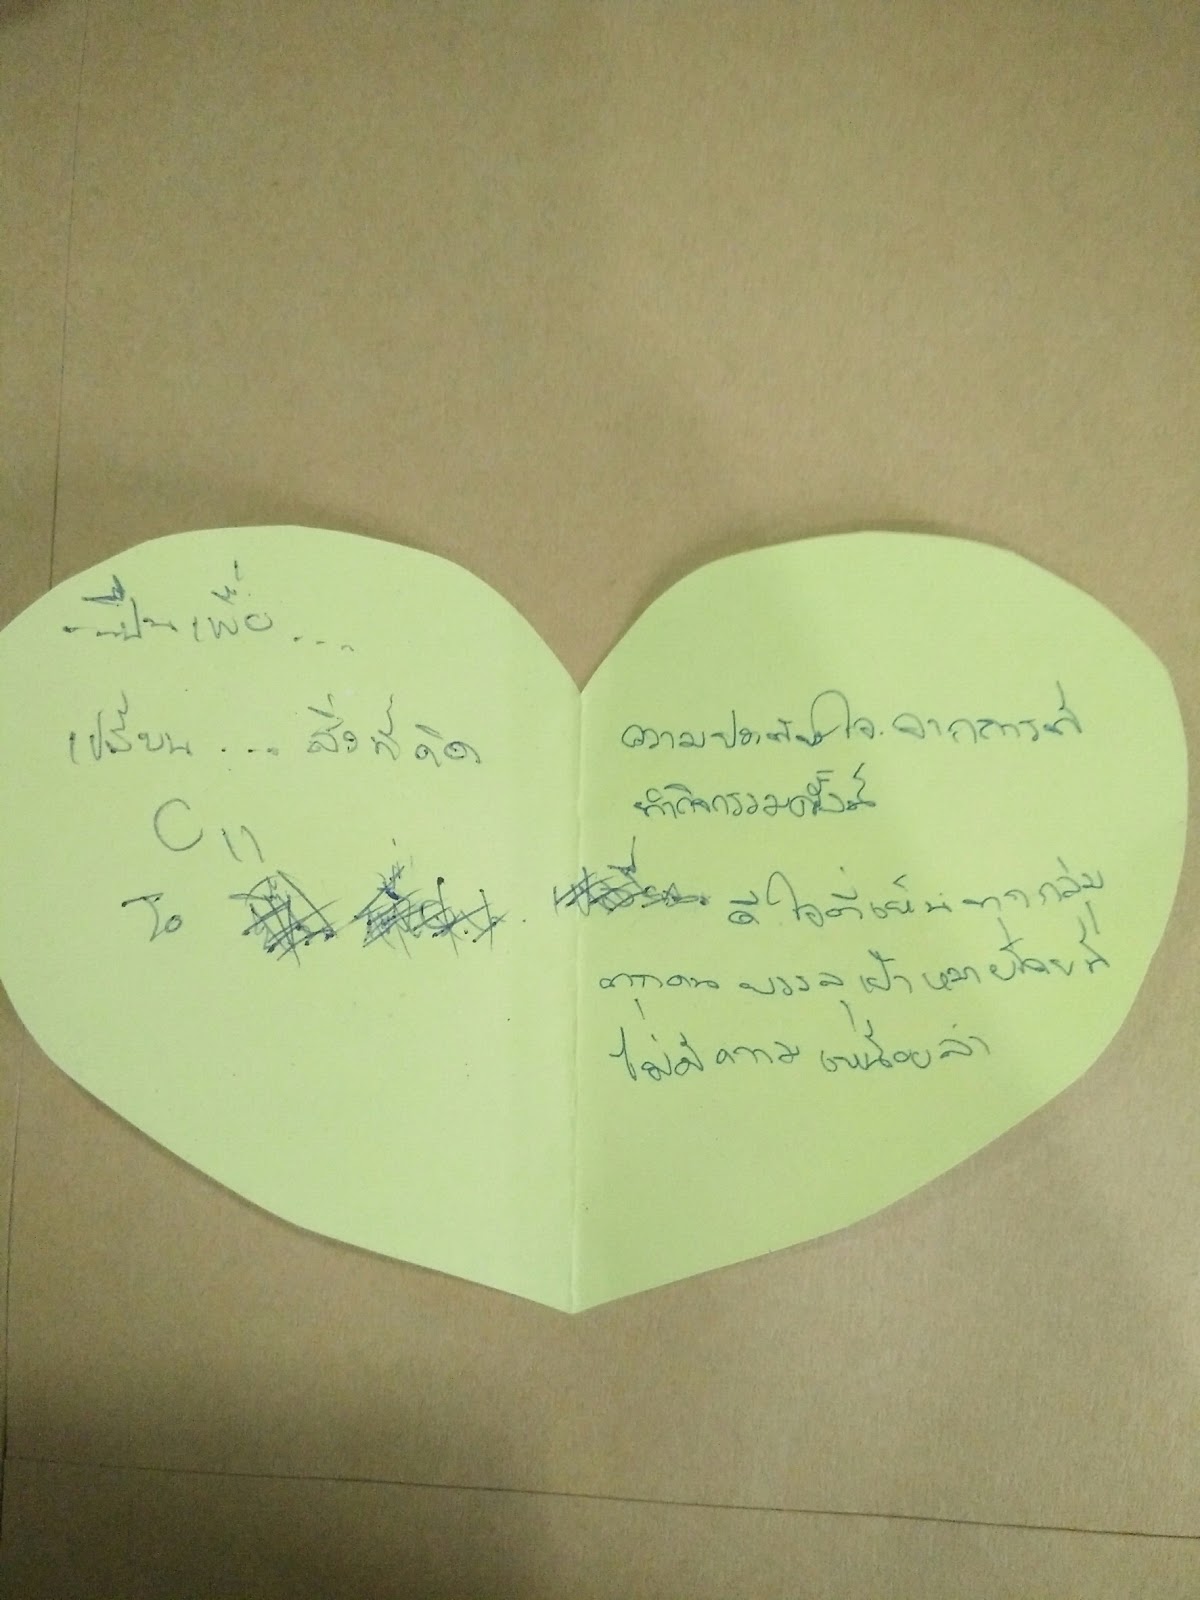 ...ปั่นเพื่อ...
เปลี่ยน... สิ่งที่คิด
C11
To
ความประทับใจ จากการที่
ทำกิจกรรมครั้งนี้
ดีใจที่เห็นทุกกลุ่ม
ทุกคน บรรลุเป้าหมายโดยที่
ไม่มีความเหนื่อยล้า